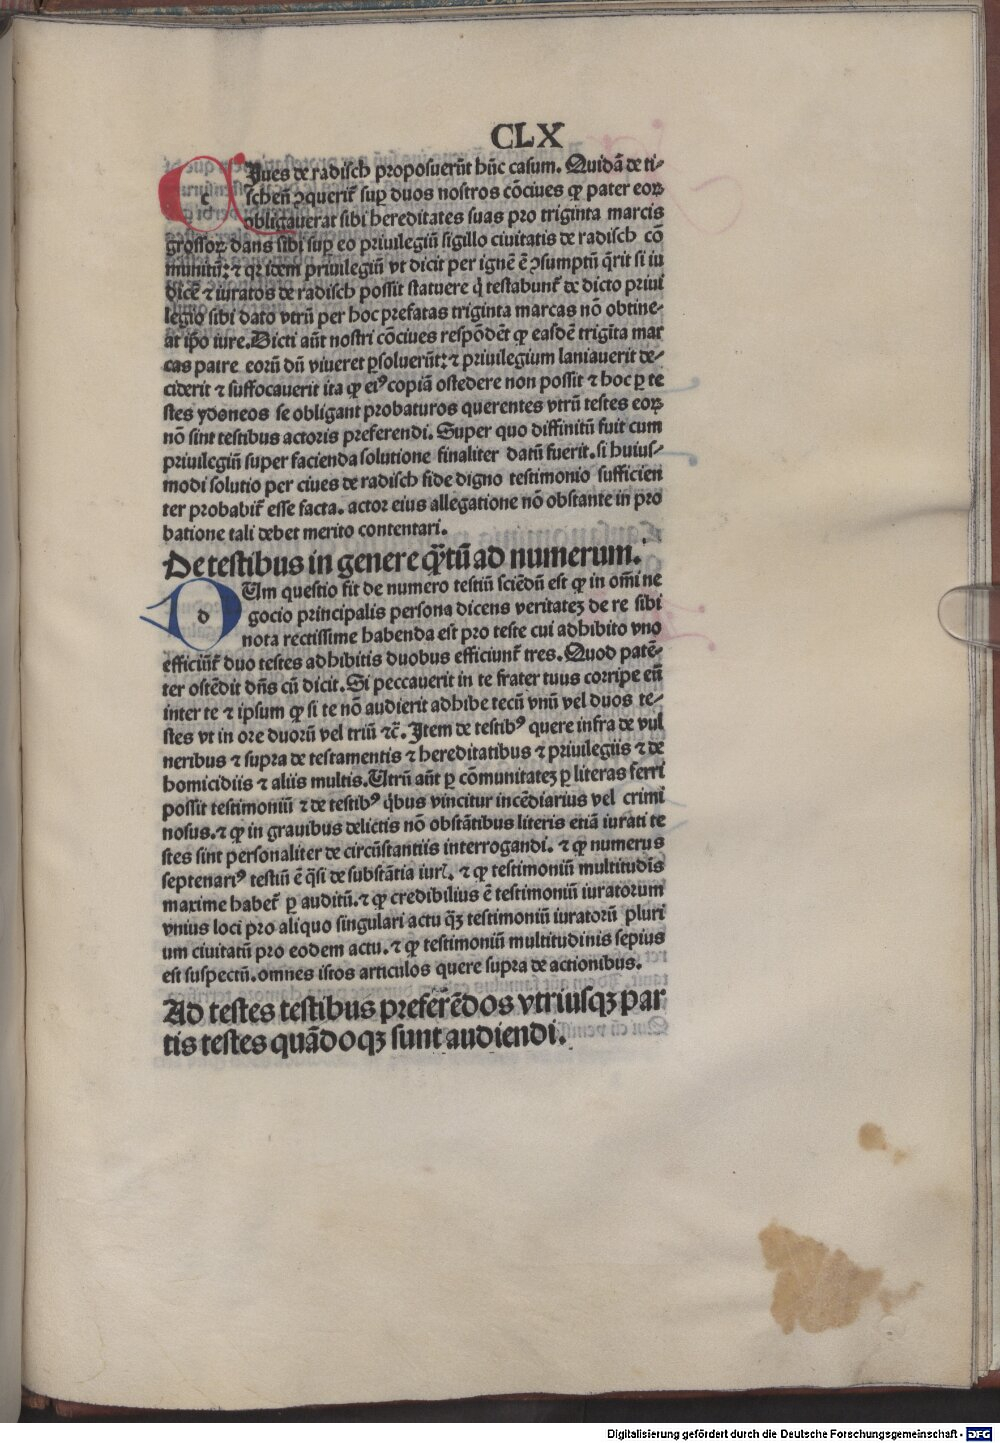 CLX
CIues de radisch proposuerūt hūc casum. Quidā de ti-
scheñ ꝯquerit᷑ sup̱ duos nostros cōciues ꝙ pater eoꝝ
obligauerat sibi hereditates suas pro triginta marcis
grossoꝝ dans sibi sup̱ eo priuilegiū sigillo ciuitatis de radisch cō
munitū: ⁊ qꝛ idem priuilegiū vt dicit per ignē ē ꝯsumptū q̄rit si iu
dicē ⁊ iuratos de radisch possit statuere q̇ testabunt᷑ de dicto priui
legio sibi dato vtrū per hoc prefatas triginta marcas nō obtine-
at ip̄o iure. Dicti aūt nostri cōciues respōdēt ꝙ easdē trigīta mar
cas patre eorū dū viueret ꝑsoluerūt: ⁊ priuilegium laniauerit de-
ciderit ⁊ suffocauerit ita ꝙ eiꝰ copiā ostēdere non possit ⁊ hoc ꝑ te
stes ydoneos se obligant probaturos querentes vtrū testes eoꝝ
nō sint testibus actoris preferendi. Super quo diffinitū fuit cum
priuilegiū super facienda solutione finaliter datū fuerit. si huius-
modi solutio per ciues de radisch fide digno testimonio sufficien
ter probabit᷑ esse facta. actor eius allegatione nō obstante in pro
batione tali debet merito contentari.
De testibus in genere q̄tū ad numerum.
dUm questio fit de numero testiū sciēdū est ꝙ in om̄i ne
gocio principalis persona dicens veritateꝫ de re sibi
nota rectissime habenda est pro teste cui adhibito vno
efficiūt᷑ duo testes adhibitis duobus efficiunt᷑ tres. Quod patē-
ter ostēdit dn̄s cū dicit. Si peccauerit in te frater tuus corripe eū
inter te ⁊ ipsum ꝙ si te nō audierit adhibe tecū vnū vel duos te-
stes vt in ore duorū vel triū ⁊c̄. Item de testibꝰ quere infra de vul
neribus ⁊ supra de testamentis ⁊ hereditatibus ⁊ priuilegiis ⁊ de
homicidiis ⁊ aliis multis. Utrū aūt ꝑ cōmunitateꝫ ꝑ literas ferri
possit testimoniū ⁊ de testibꝰ q̇bus vincitur incēdiarius vel crimi
nosus. ⁊ ꝙ in grauibus delictis nō obstātibus literis etiā iurati te
stes sint personaliter de circūstantiis interrogandi. ⁊ ꝙ numerus
septenariꝰ testiū ē q̄si de substātia iurꝭ. ⁊ ꝙ testimoniū multitudīs
maxime habet᷑ ꝑ auditū. ⁊ ꝙ credibilius ē testimoniū iuratorum
vnius loci pro aliquo singulari actu q̄ꝫ testimoniū iuratorū pluri
um ciuitatū pro eodem actu. ⁊ ꝙ testimoniū multitudinis sepius
est suspectū. omnes istos articulos quere supra de actionibus.
Ad testes testibus preferēdos vtriusqꝫ par
tis testes quādoqꝫ sunt audiendi.
Digitalisierung gefördert durch die Deutsche Forschungsgemeinschaft - DFG